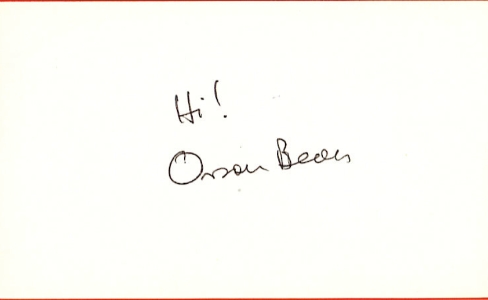 Hi!
Orson Bean